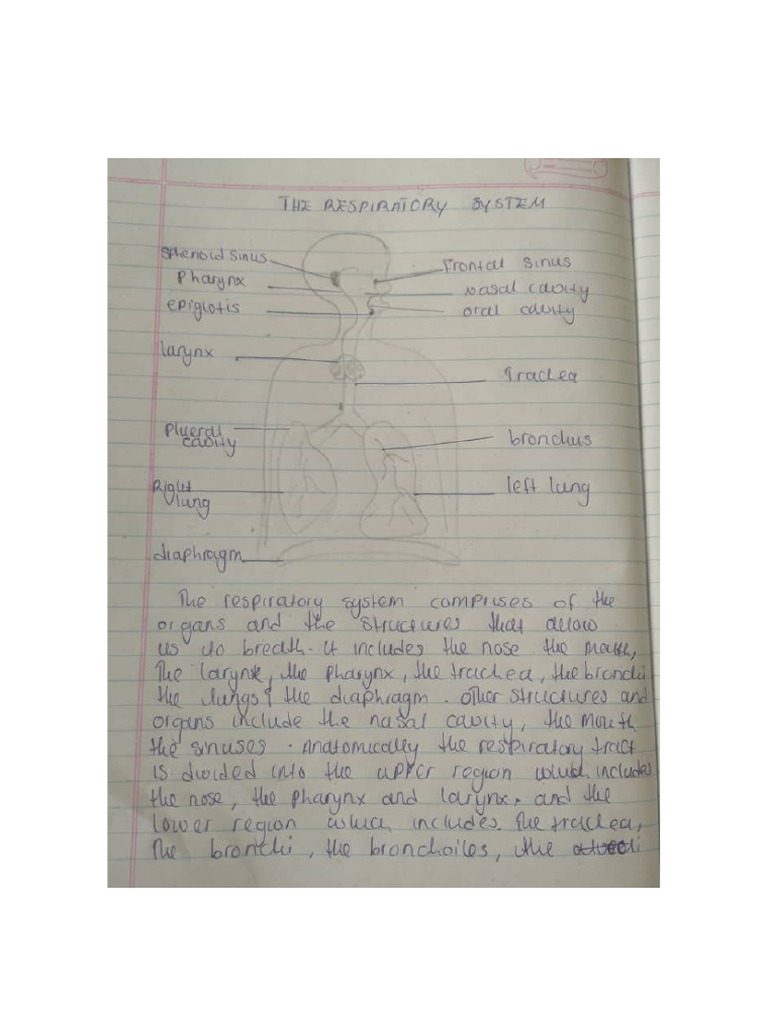 THE RESPIRATORY SYSTEM
Sphenoid sinus
Frontal sinus
Pharynx
Nasal cavity
epiglotis
oral cavity
larynx
Trachea
Plueral
cavity
bronchus
Right
lung
left lung
diaphragm
The respiratory system comprises of the
organs and the structures that allow
us to breath. it includes the nose the mouth,
The larynx, the pharynx, the trachea, the bronchi
the lungs & the diaphragm. other structures and
organs include the nasal cavity, the mouth
the sinuses. Anatomically the respiratory tract
is divided into the upper region which includes
the nose, the pharynx and larynx, and the
lower region which includes. The trachea,
The bronchi, the bronchoiles, the